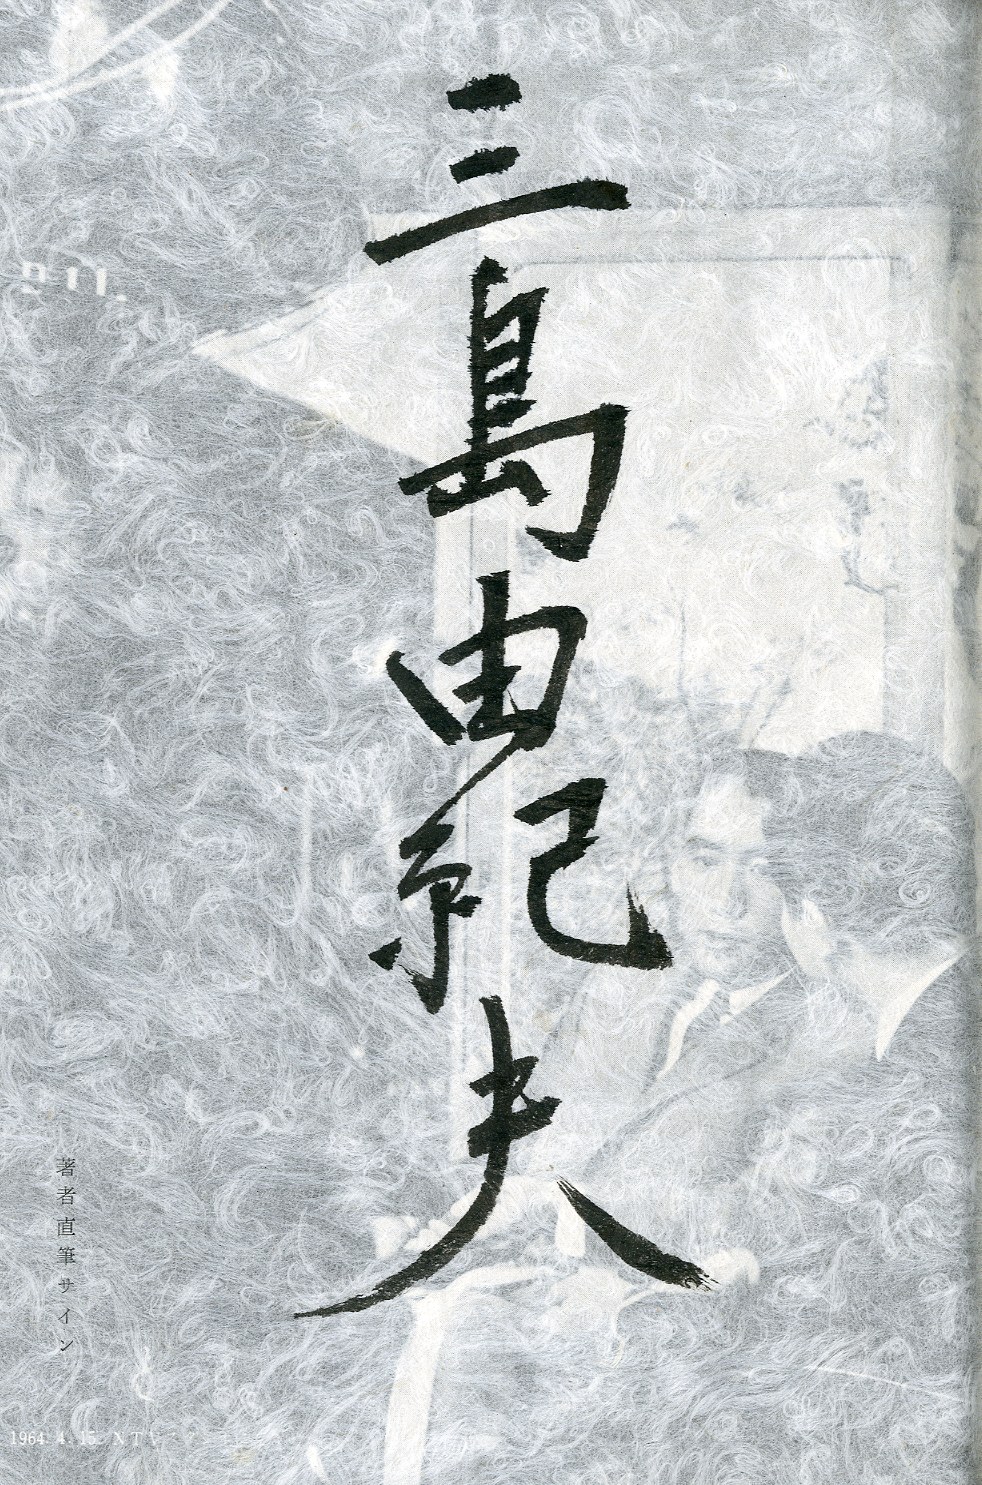 三島由紀夫
著者直筆サイン
1964. 4. 15. NTV